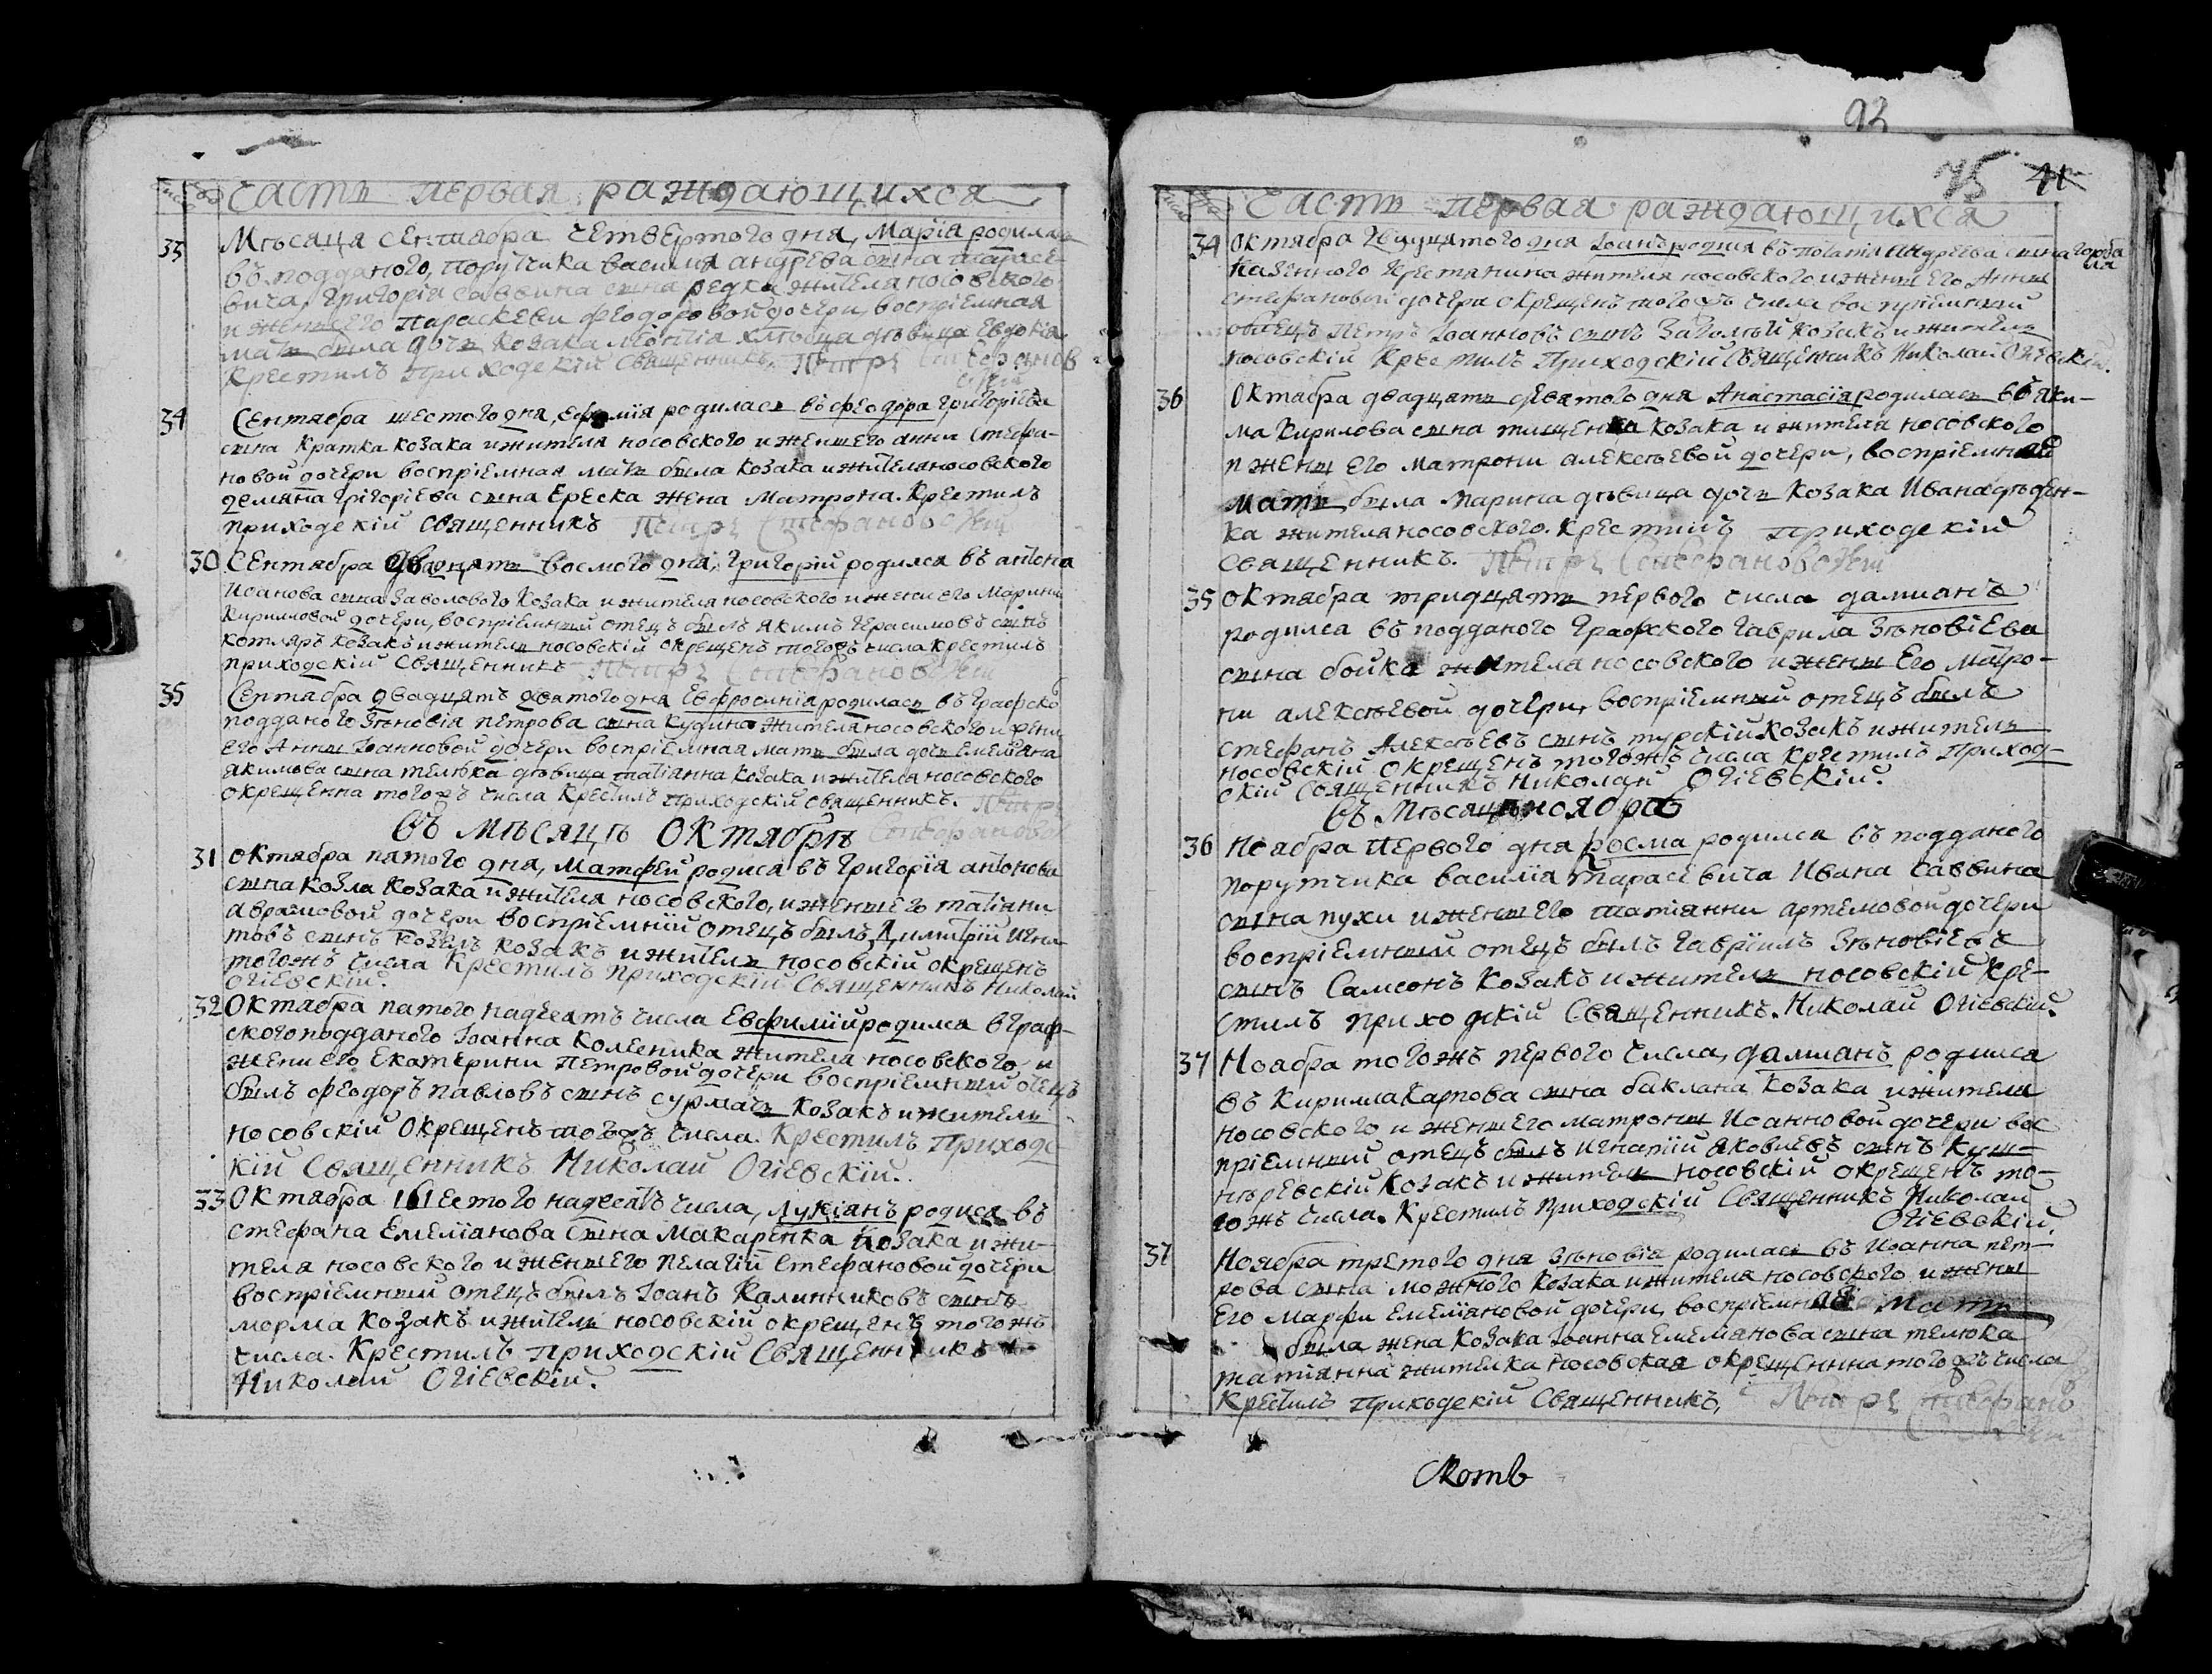 Часть первая раждающихся
33 Мѣсяца сентября четвертого дня, Марія родилась
въ подданого, порутчика василия андрѣева сына тарасе-
вича, григорія саввина сына редка жителя носовского
и жены его параскеви феодоровой дочери, воспріемная
мать была дочь козака
крестилъ приходскій священникъ. Петръ Стефановъ
34 Сентября шестого дня, ефимія родилась въ феодора григоріева
сына кратка козака и жителя носовского и жены его анни стефа-
новой дочери воспріемная мать была козака и жителя носовского
демяна григоріева сына Ереска жена матрона. Крестилъ
приходскій священникъ Петръ Стефановъ
30 Сентября двадцять восмого дня, григорій родился въ антона
иоанова сына заволового козака и жителя носовского и жени его марини
кириловой дочери, воспріемный отецъ былъ якимъ герасимовъ сынъ
котляръ козакъ и житель носовскій окрещенъ тогожъ числа крестилъ
приходскій священникъ Петръ Стефановъ
35 Сентября двадцять девятого дня Евфросинія родилась въ графско
подданого зѣновія петрова сына кудина жителя носовского и жени
его Анны Іоанновой дочери воспріемная мать была дочь емеліяна
якимова сына телюка дѣвица татіанна козака и жителя носовского
окрещенна тогожъ числа крестилъ приходскій священникъ. Петръ
Въ мѣсяцѣ октябрѣ Стефановъ
31 октября пятого дня, матфей родися въ григорія антонова
сына козла козака и жителя носовского, и жены его татіани
аврамовой дочери воспріемній отецъ былъ димитрій игна-
товъ сынъ козелъ козакъ и житель носовскій окрещенъ
тогожъ числа крестилъ приходскій священникъ николай
огіевскій.
32 Октября пятого надцеять числа Евфимій родился в граф-
ского подданого Іоанна Коленика жителя носовского, и
жени его екатерини петровой дочери воспріемный отецъ
былъ феодоръ павловъ сынъ сурмачъ козакъ и житель
носовскій окрещенъ тогожъ числа. Крестилъ приходс
кій священникъ Николай Огіевскій.
33 Октября шестого надцеять числа, лукіянъ родися въ
стефана Емеліанова сына макаренка козака и жи-
теля носовского и жены его пелагіи стефановой дочери
воспріемный отецъ былъ Іоанъ калинниковъ сынъ
морма козакъ и житель носовскій окрещенъ тогожъ
числа. Крестилъ приходскій священникъ
Николай Огіевскій.
92
75 41
Часть первая раждающихся
34 октября двадцятого дня Іоанъ родися въ потапія андреева сына горба
казенного крестянина жителя носовского и жены его анны
стефановой дочери окрещенъ тогожъ числа воспріемный
отецъ петръ Іоанновъ сынъ козакъ и житель
носовскій крестилъ приходскій священникъ Николай Огіевскій.
36 октября двадцять девятого дня Анастасія родилась въ яки-
ма кирилова сына тищенка козака и жителя носовского
и жены его матрони алексѣевой дочери, воспріемная
мать была марина дѣвица дочь козака Ивана
ка жителя носовского. крестилъ приходскій
священникъ. Петръ Стефановъ
35 октября тридцять первого числа дамианъ
родился въ подданого графского гаврила зѣновіева
сына бойка жителя носовского и жены его матро-
ни алексѣевой дочери, воспріемный отецъ былъ
стефанъ алексѣевъ сынъ турскій козакъ и житель
носовскій окрещенъ тогожъ числа крестилъ приход-
скій священникъ николай Огіевскій.
Въ мѣсяцѣ ноябрѣ
36 Ноября первого дня косма родился въ подданого
порутчика василія тарасевича Ивана саввина
сына пухи и жены его татіянни артемовой дочери
воспріемный отецъ былъ гавріилъ зѣновіевъ
сынъ самсонъ козакъ и житель носовскій кре-
стилъ приходскій священникъ. Николай Огіевскій.
37 Ноября тогожъ первого числа, дамианъ родился
въ кирилла карпова сына баклана козака и жителя
носовского и жены его матроны Иоанновой дочери вос
пріемный отецъ былъ игнатій яковлевъ сынъ куш-
нѣревскій козакъ и житель носовскій окрещенъ то-
гожъ числа. крестилъ приходскій священникъ Николай
Огіевскій.
37 Ноября третого дня зѣновія родилась въ иоанна пет-
рова сына можного козака и жителя носовского и жены
его марфи емеліяновой дочери, воспріемная мать
была жена козака Іоанна емелиянова сына телюка
татіянна жителка носовская окрещенна тогожъ числа
крестилъ приходскій священникъ, Петръ Стефановъ